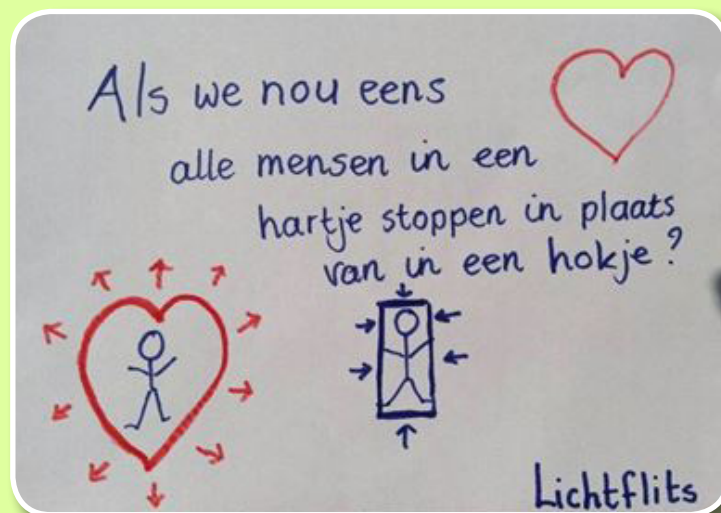 Als we nou eens
alle mensen in een
hartje stoppen in plaats
van in een hokje?
Lichtflits